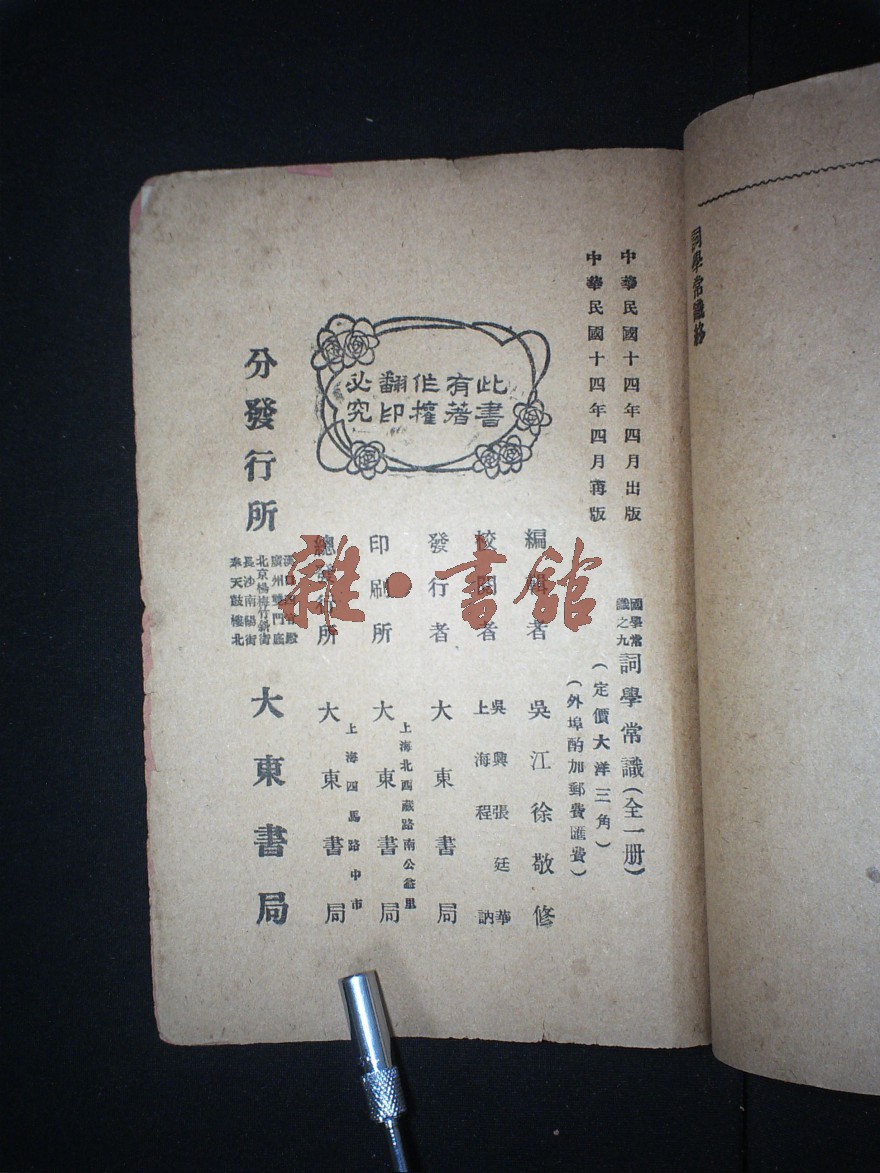 詞學常識終
中華民國十四年四月出版
中華民國十四年四月再版
國學常識之九
詞學常識(全一册)
(定價大洋三角)
(外埠酌加郵費匯費)
此書有著作權翻印必究
編輯者 吳江徐敬修
校閱者 吳興張廷華
上海程訥
發行者 大東書局
上海北西藏路南公益里
印刷所 大東書局
上海四馬路中市
總發行所 大東書局
分發行所
漢口
廣州雙門底
北京楊梅竹斜街
長沙南陽街
奉天鼓樓北
大東書局
雜·書館